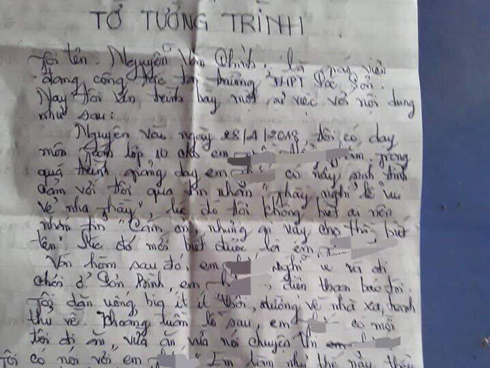 TỜ TƯỜNG TRÌNH
Tôi tên: Nguyễn Văn Chính, là giáo viên
đang công tác tại trường THPT Sóc Sơn.
Nay tôi xin trình bày một sự việc với nội dung
như sau:
Nguyên vào ngày 28/1/2018 tôi có dạy
môn lớp 10 cho em trong
quá trình giảng dạy em có nảy sinh tình
cảm với tôi qua tin nhắn "thầy nghỉ lễ vui
vẻ nha thầy", lúc do tôi không biết ai nên
nhắn tin "Cảm ơn, nhưng ai vậy cho thầy biết
tên" lúc đó mới biết được là em
Vài hôm sau đó, em nghỉ rủ đi
chơi ở Sơn Bình, em điện thoại báo tôi.
Tôi dặn uống bia ít ít thôi, đường về nhà xa,
về khoảng tuần lễ sau, em có mời
tôi đi ăn, vừa ăn vừa nói chuyện thì em
Tôi có nói với em "Em làm như thế này thầy